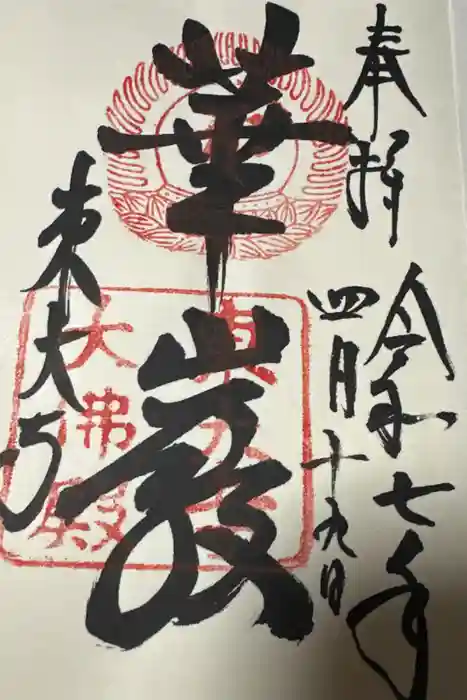 奉拝
令和七年
四月十九日
華嚴
東大寺
東大寺
大佛殿